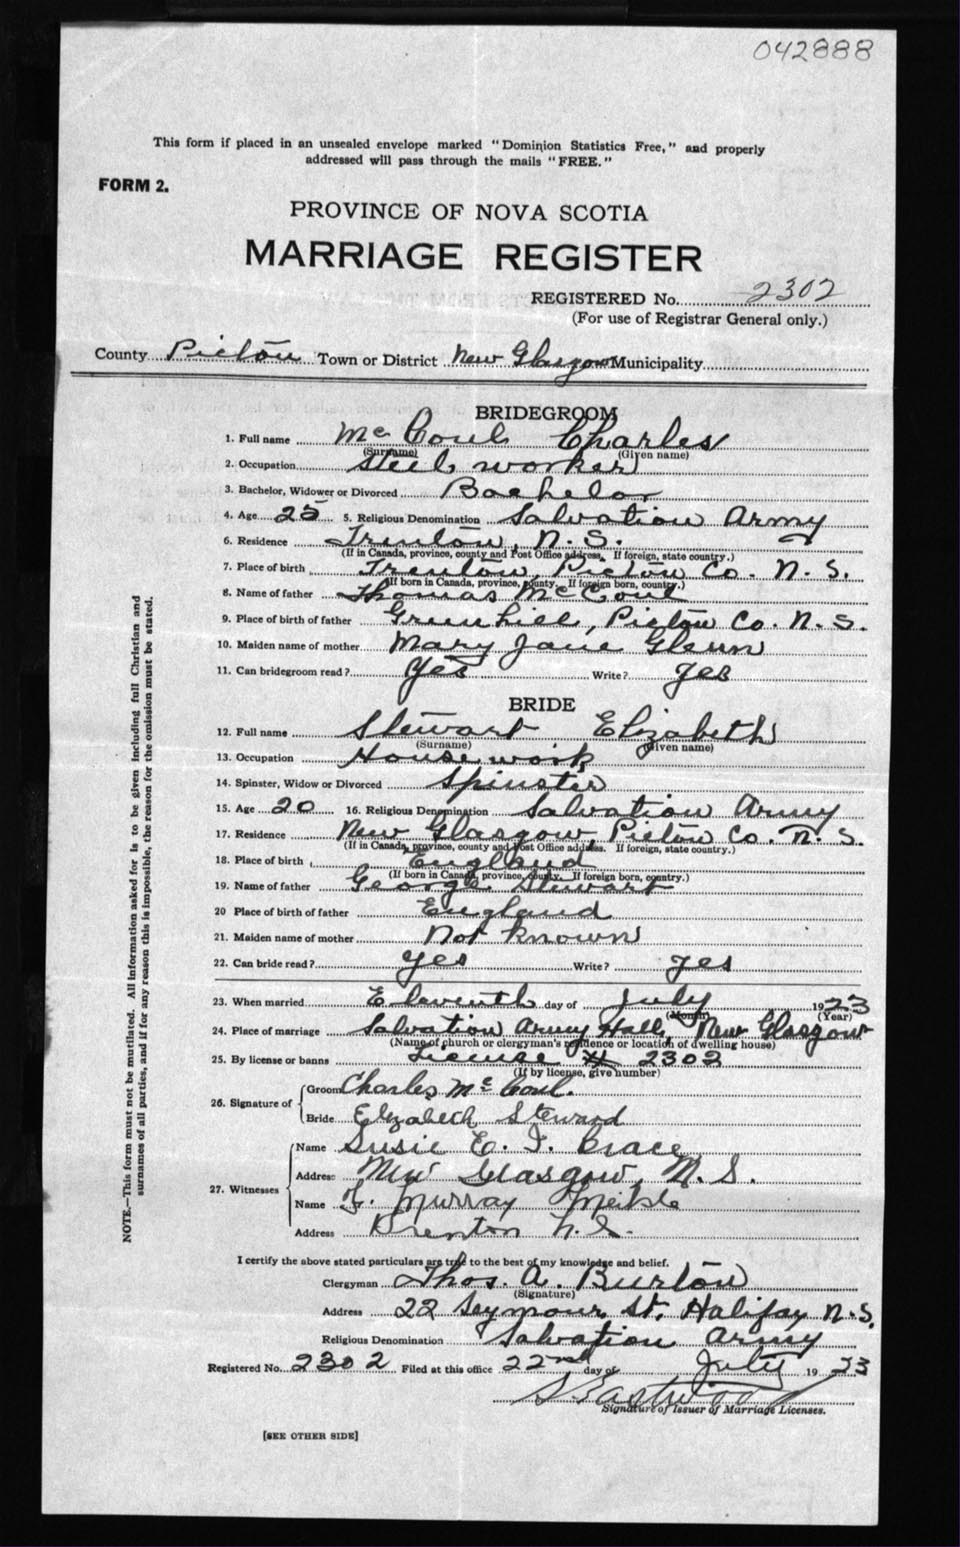 042888
This form if placed in an unsealed envelope marked "Dominion Statistics Free," and properly
addressed will pass through the mails "FREE."
FORM 2.
PROVINCE OF NOVA SCOTIA
MARRIAGE REGISTER
REGISTERED No. 2302
(For use of Registrar General only.)
County Pictou Town or District New Glasgow Municipality
BRIDEGROOM
1. Full name McCoul Charles
(Surname) (Given name)
2. Occupation Steel worker
3. Bachelor, Widower or Divorced Bachelor
4. Age 25 5. Religious Denomination Salvation Army
6. Residence Trenton, N.S.
(If in Canada, province, county and Post Office address. If foreign, state country.)
7. Place of birth Trenton, Pictou Co. N.S.
(If born in Canada, province, county. If foreign born, country.)
8. Name of father Thomas McCoul
9. Place of birth of father Greenhill, Pictou Co. N.S.
10. Maiden name of mother Mary Jane Glenn
11. Can bridegroom read? Yes Write? Yes
BRIDE
12. Full name Stewart Elizabeth
(Surname) (Given name)
13. Occupation Housework
14. Spinster, Widow or Divorced Spinster
15. Age 20 16. Religious Denomination Salvation Army
17. Residence New Glasgow, Pictou Co. N.S.
(If in Canada, province, county and Post Office address. If foreign, state country.)
18. Place of birth England
(If born in Canada, province, county. If foreign born, country.)
19. Name of father George Stewart
20 Place of birth of father England
21. Maiden name of mother Not known
22. Can bride read? Yes Write? Yes
23. When married Eleventh day of July 1923
(Month) (Year)
24. Place of marriage Salvation Army Hall, New Glasgow
(Name of church or clergyman's residence or location of dwelling house)
25. By license or banns License # 2302
(If by license, give number)
26. Signature of Groom Charles McCoul.
Bride Elizabeth Steward
27. Witnesses Name Susie E. Grace
Address New Glasgow, N.S.
Name Murray Meikle
Address Trenton N.S.
I certify the above stated particulars are true to the best of my knowledge and belief.
Clergyman Thos. A. Burton
(Signature)
Address 22 Seymour St. Halifax N.S.
Religious Denomination Salvation Army
Registered No. 2302 Filed at this office 22nd day of July 1923
Signature of Issuer of Marriage Licenses.
[SEE OTHER SIDE]
NOTE.—This form must not be mutilated. All information asked for is to be given including full Christian and
surnames of all parties, and if for any reason this is impossible, the reason for the omission must be stated.